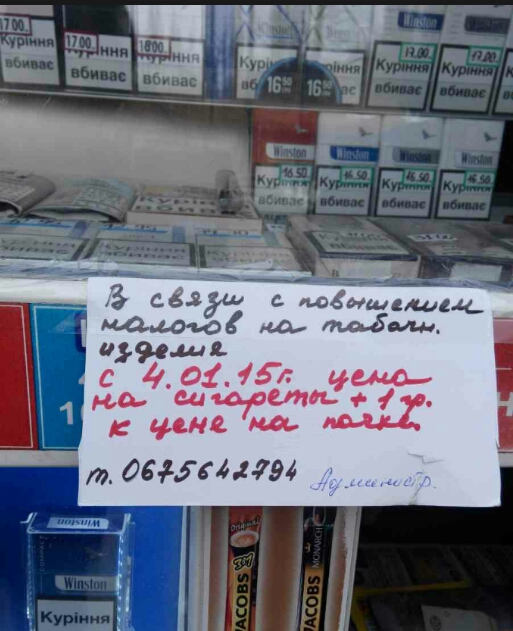 17.00
Куріння
вбиває
17.00
ння
вбиває
18.00
ння
вбиває
16 50
16 50
Winston
17.00
Куріння
вбиває
17.00
Куріння
вбиває
Winston
16.50
вбиває
Winston
16.50
вбиває
Winston
16.50
вбиває
Winston
16.50
вбиває
Куріння
В связи с повышением
налогов на табачн.
изделия
с 4.01.15г. цена
на сигареты + 1 гр.
к цене на пачке.
т. 0675642794
Администр.
Winston
Winston
Куріння
Original
3в1
JACOBS
MONARCH
JACOBS